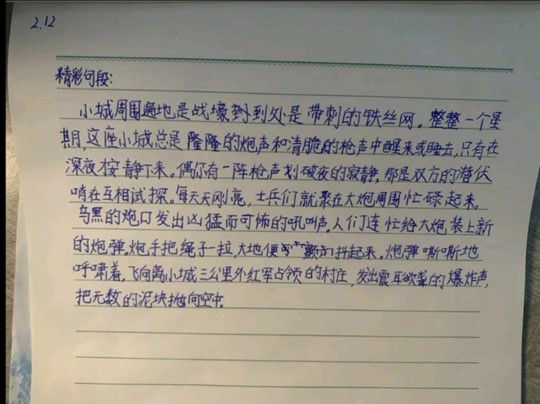 2.12
精彩句段:
小城周围遍地是战壕到到处是带刺的铁丝网。整整一个星
期,这座小城总是隆隆的炮声和清脆的枪声中醒来或睡去,只有在
深夜才安静下来。偶尔有一阵枪声划破夜的寂静,那是双方的潜伏
哨在互相试探。每天天刚亮,士兵们就聚在大炮周围忙碌起来。
乌黑的炮口发出凶猛而可怖的吼叫声,人们连忙给大炮装上新
的炮弹,炮手把绳子一拉,大地便颤抖起来,炮弹嘶嘶地
呼啸着,飞向离小城三公里外红军占领的村庄,发出震耳欲聋的爆炸声,
把无数的泥块抛向空中.